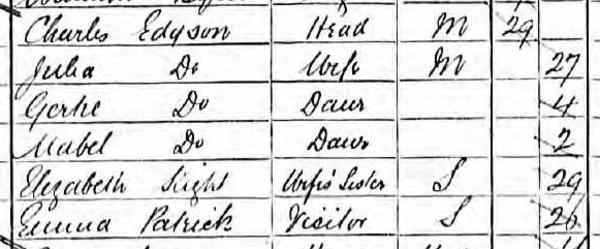 Charles Edgson Head M 29
Julia Do Wife M 27
Gertie Do Daur 4
Mabel Do Daur 2
Elizabeth Sight Wife's Sister S 29
Emma Patrick Visitor S 26